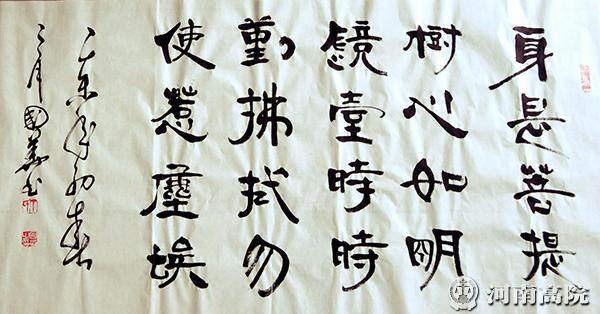 身是菩提
樹心如明
鏡臺時時
勤拂拭勿
使惹塵埃
初春
二月國
河南高院